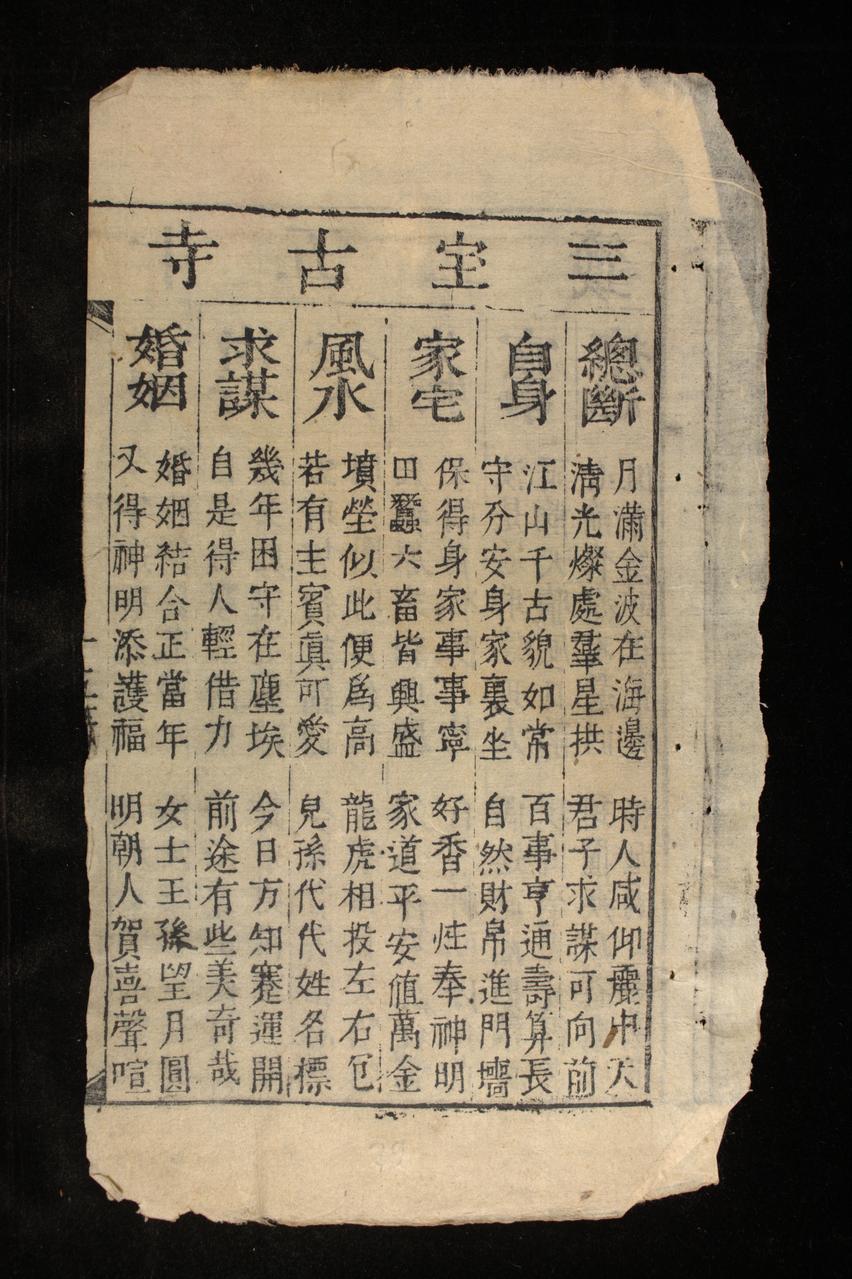 三宝古寺
總斷
月滿金波在海邊 時人咸仰麗中天
清光燦處羣星拱 君子求謀可向前
自身
江山千古貌如常 百事亨通壽算長
守分安身家裏坐 自然財帛進門墻
家宅
保得身家事事寧 好香一炷奉神明
田蠶六畜皆興盛 家道平安値萬金
風水
墳塋似此便爲高 龍虎相投左右包
若有主賓眞可愛 兒孫代代姓名標
求謀
幾年困守在塵埃 今日方知蹇運開
自是得人輕借力 前途有些美奇哉
婚姻
婚姻結合正當年 女士王孫望月圓
又得神明添護福 明朝人賀喜聲喧